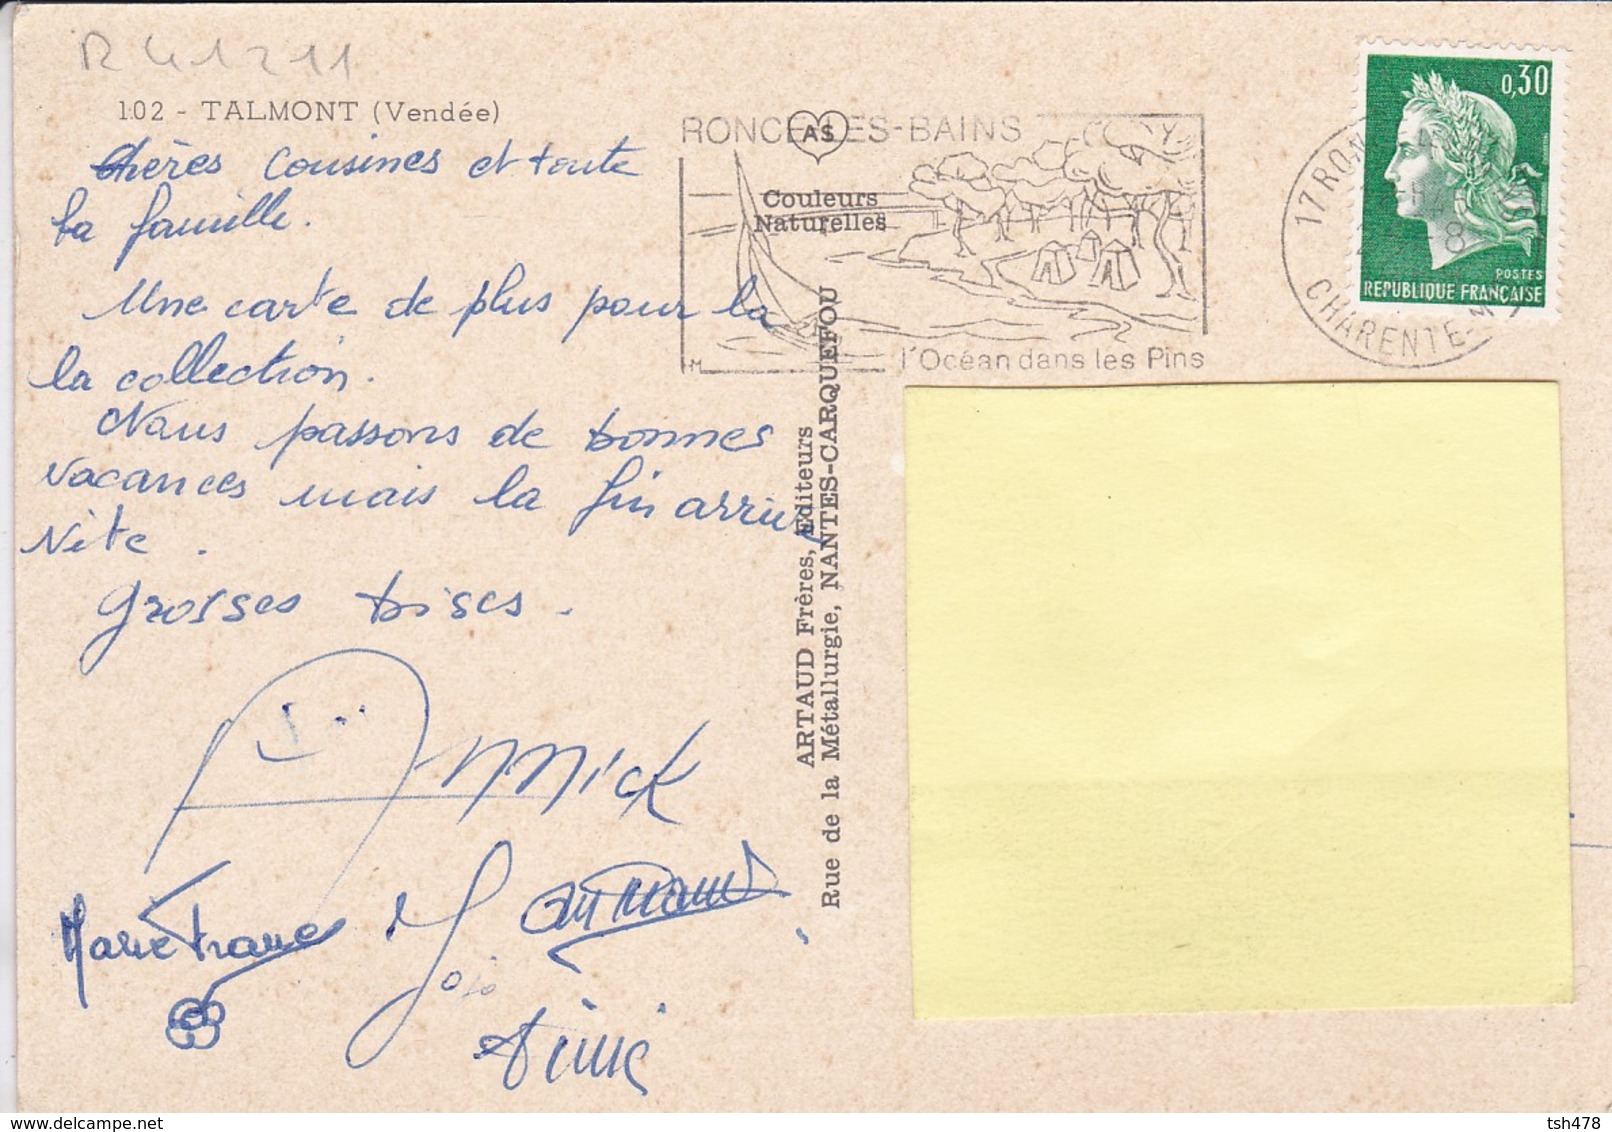 R 41211
102 - TALMONT (Vendée)
Chères Cousines et toute
la famille.
Une carte de plus pour la
la collection.
Nous passons de bonnes
vacances mais la fin arrive
vite.
Grosses bises.
Annick
Marie France
Jojo
RONCE-LES-BAINS
AS
Couleurs
Naturelles
HM
l'Océan dans les Pins
ARTAUD Frères, Editeurs
Rue de la Métallurgie, NANTES-CARQUEFOU
17 RON
CHARENTE-M
0,30
POSTES
REPUBLIQUE FRANÇAISE
tsh478